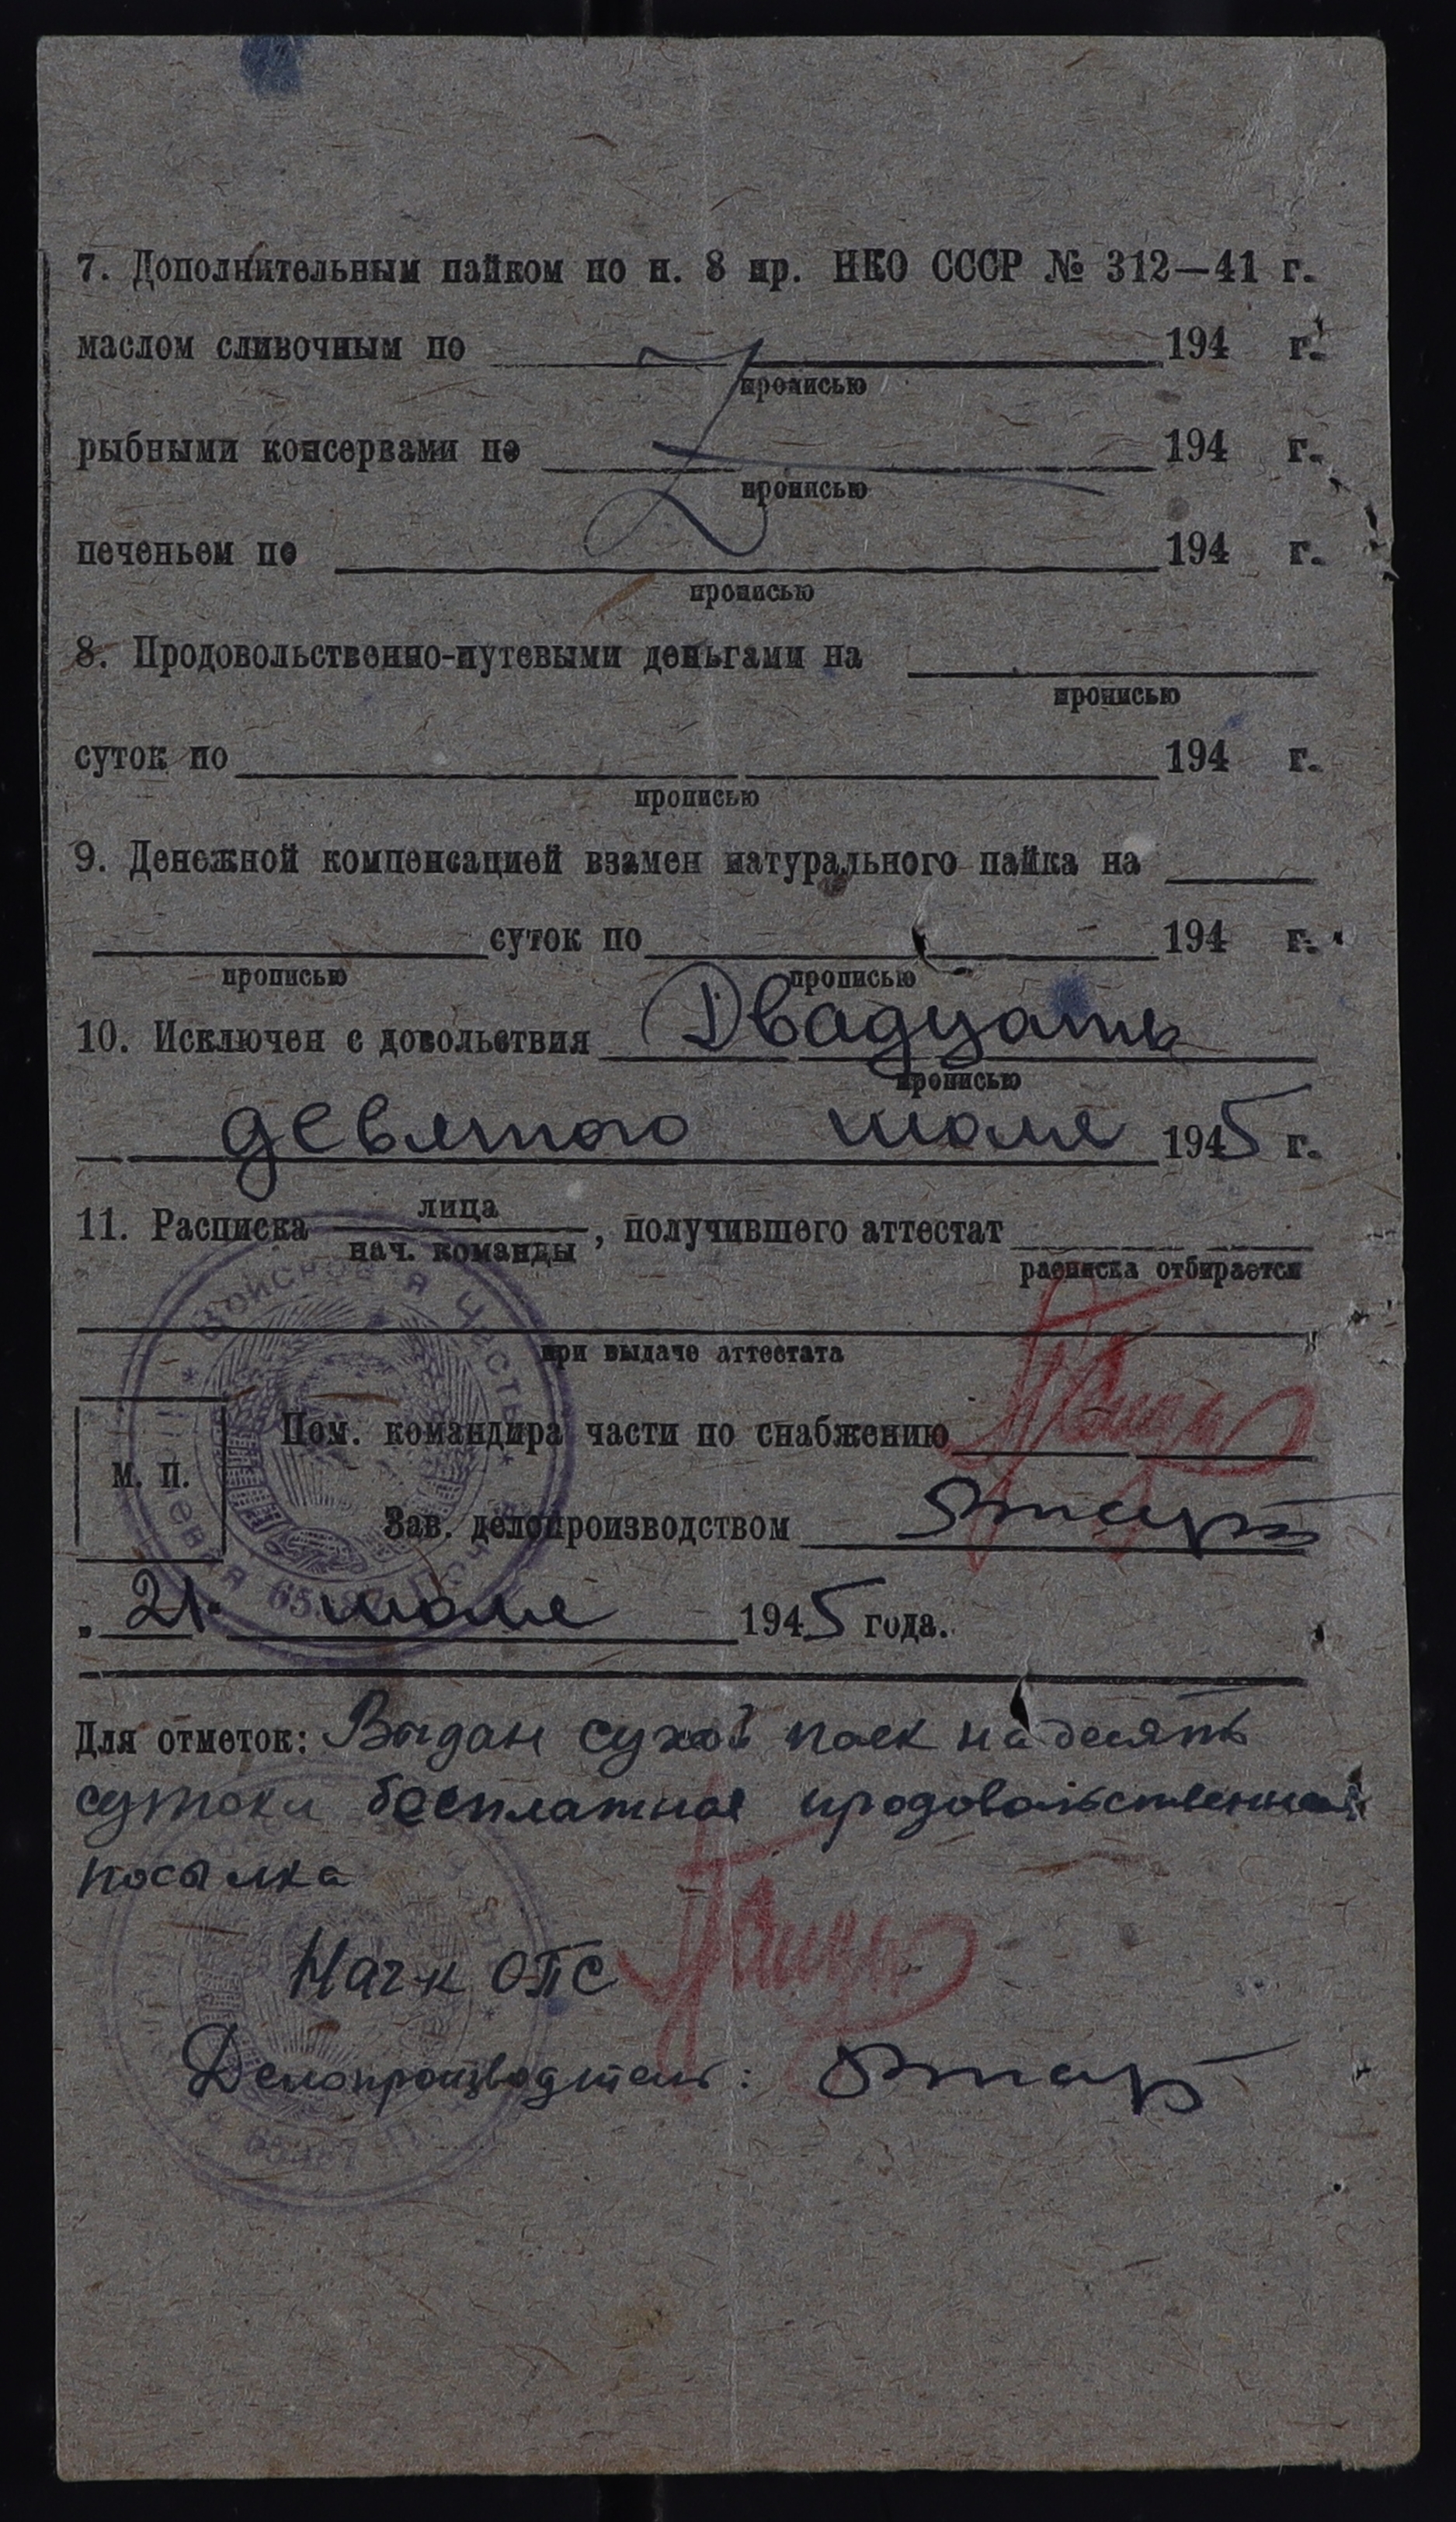 7. Дополнительным пайком по н. 8 пр. НКО СССР № 312—41 г.
маслом сливочным по 194 г.
прописью
рыбными консервами по 194 г.
прописью
печеньем по 194 г.
прописью
8. Продовольственно-путевыми деньгами на
прописью
суток по 194 г.
прописью
9. Денежной компенсацией взамен натурального пайка на
суток по 194 г.
прописью прописью
10. Исключен с довольствия Двадцать
прописью
девятого июля 1945 г.
11. Расписка лица
нач. команды, получившего аттестат
расписка отбирается
при выдаче аттестата
Пом. командира части по снабжению
М. П.
Зав. делопроизводством
„21. июля 1945 года.
Для отметок: Выдан сухой паек на десять
сутоки бесплатная продовольственная
посылка
Нач-к ОПС
Делопроизводитель:
Войсковая часть
Полевая почта